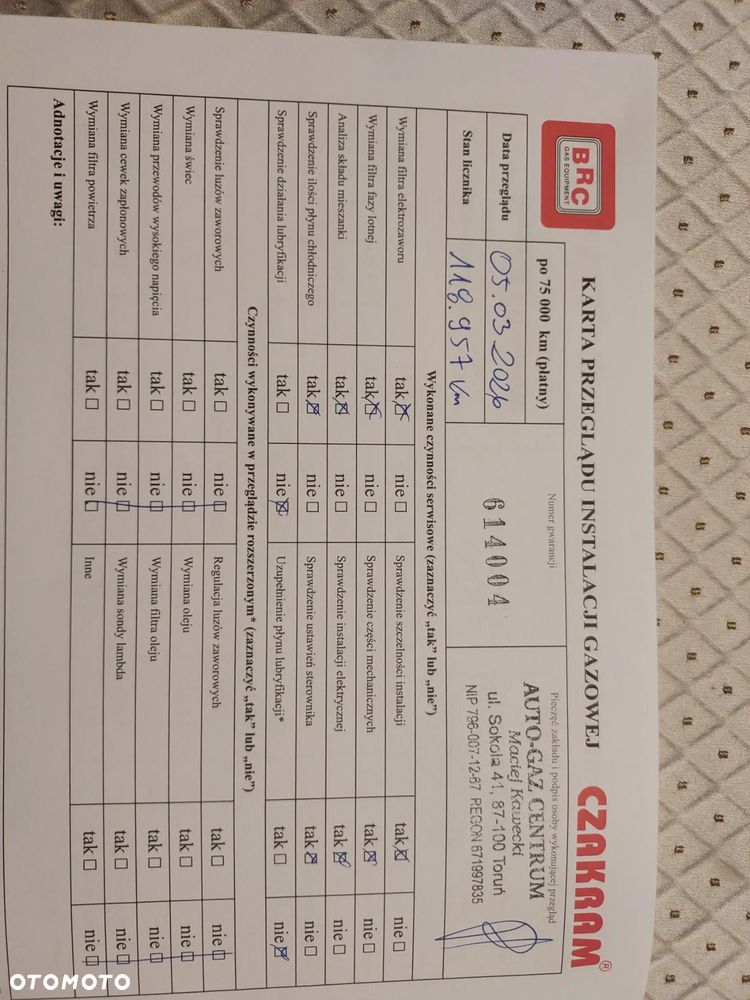 BRC
GAS EQUIPMENT
KARTA PRZEGLĄDU INSTALACJI GAZOWEJ
CZAKRAM®
po 75 000 km (płatny)
Numer gwarancji
Pieczęć zakładu i podpis osoby wykonującej przegląd
Data przeglądu
05.03.2026
614004
AUTO-GAZ CENTRUM
Maciej Kawecki
ul. Sokola 41, 87-100 Toruń
NIP 796-007-12-67 REGON 671997835
Stan licznika
118.957 km
Wykonane czynności serwisowe (zaznaczyć „tak” lub „nie”)
Wymiana filtra elektrozaworu tak ☒ nie ☐ Sprawdzenie szczelności instalacji tak ☒ nie ☐
Wymiana filtra fazy lotnej tak ☒ nie ☐ Sprawdzenie części mechanicznych tak ☒ nie ☐
Analiza składu mieszanki tak ☒ nie ☐ Sprawdzenie instalacji elektrycznej tak ☒ nie ☐
Sprawdzenie ilości płynu chłodniczego tak ☒ nie ☐ Sprawdzenie ustawień sterownika tak ☒ nie ☐
Sprawdzenie działania lubryfikacji tak ☐ nie ☒ Uzupełnienie płynu lubryfikacji* tak ☐ nie ☒
Czynności wykonywane w przeglądzie rozszerzonym* (zaznaczyć „tak” lub „nie”)
Sprawdzenie luzów zaworowych tak ☐ nie ☐ Regulacja luzów zaworowych tak ☐ nie ☐
Wymiana świec tak ☐ nie ☐ Wymiana oleju tak ☐ nie ☐
Wymiana przewodów wysokiego napięcia tak ☐ nie ☐ Wymiana filtra oleju tak ☐ nie ☐
Wymiana cewek zapłonowych tak ☐ nie ☐ Wymiana sondy lambda tak ☐ nie ☐
Wymiana filtra powietrza tak ☐ nie ☐ Inne tak ☐ nie ☐
Adnotacje i uwagi:
OTOMOTO